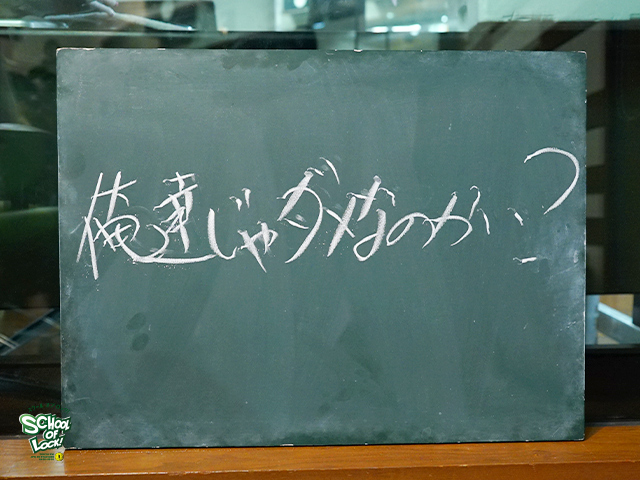 俺達じゃダメなのか…?
SCHOOL
OF
LOCK!